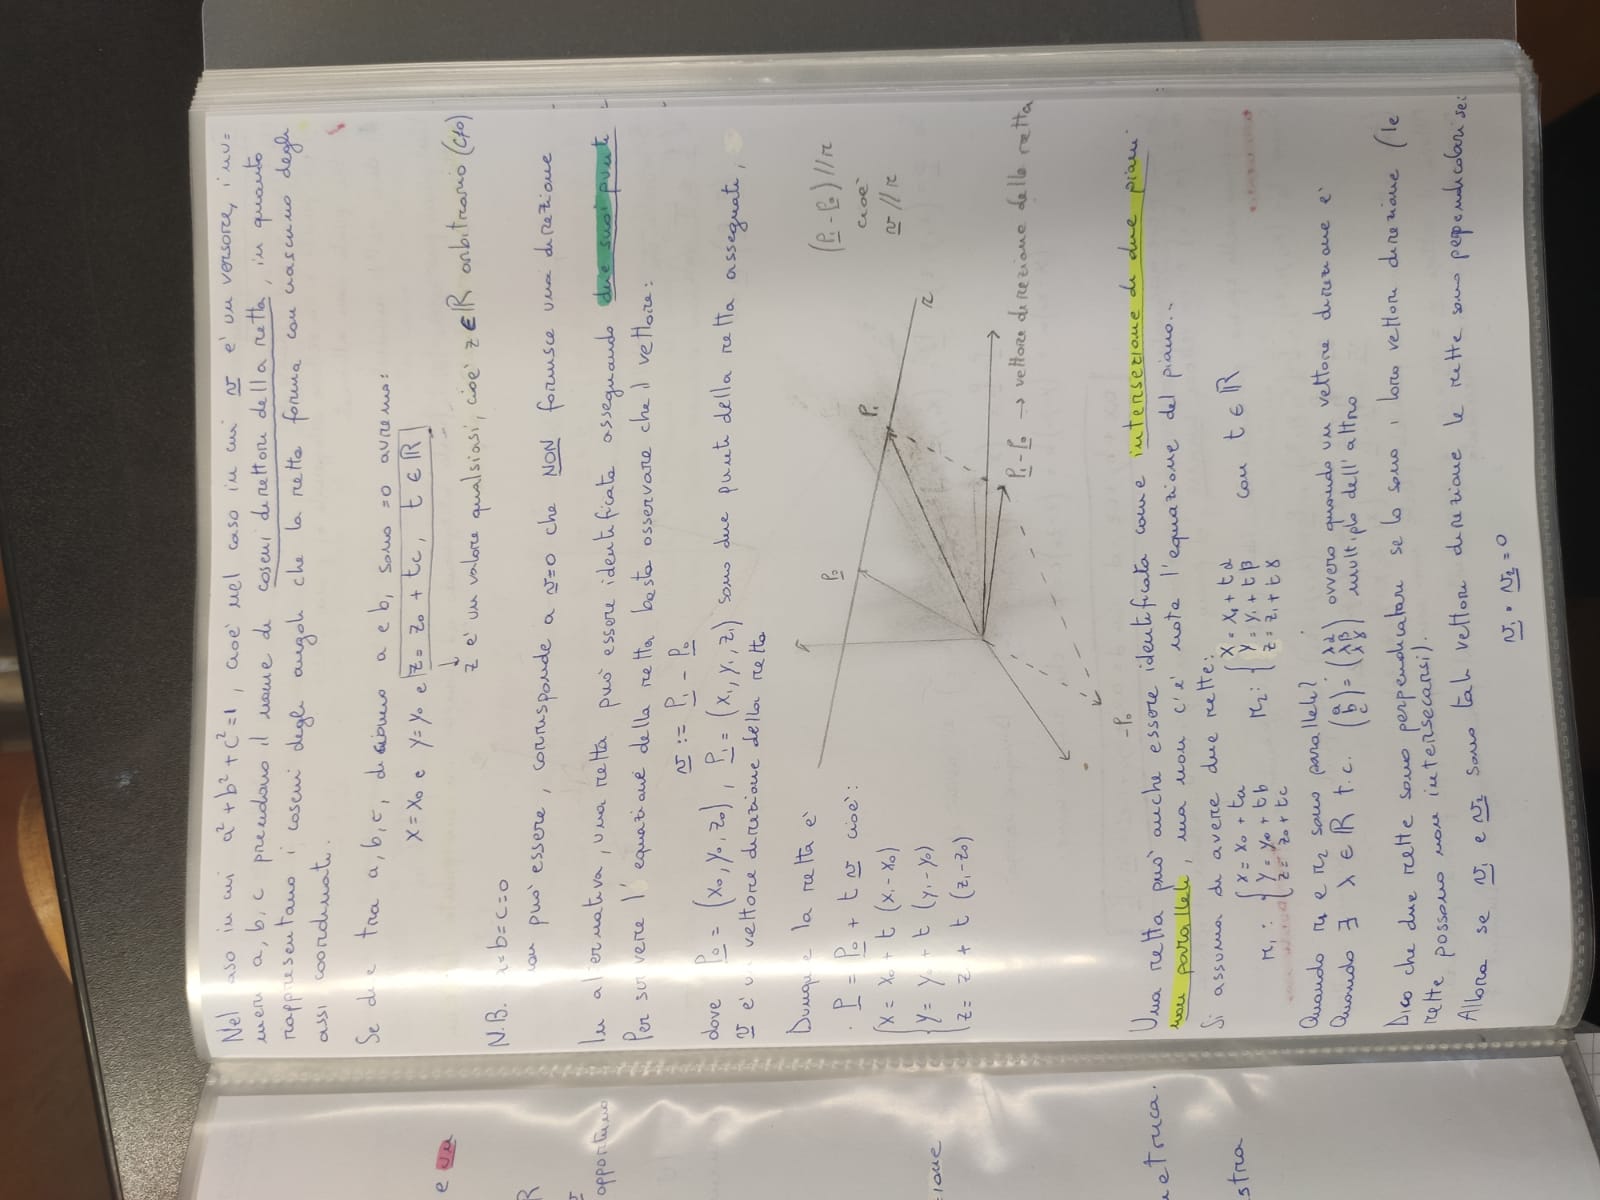 Nel caso in cui a² + b² + c² = 1, cioè nel caso in cui v è un versore, i nu=
meri a, b, c prendono il nome di coseni direttori della retta, in quanto
rappresentano i coseni degli angoli che la retta forma con ciascuno degli
assi coordinati.
Se due tra a, b, c, diciamo a e b, sono =0 avremo:
x = x₀ e y = y₀ e z = z₀ + tc, t ∈ ℝ
z è un valore qualsiasi, cioè z ∈ ℝ arbitrario (c≠0)
N.B. a=b=c=0
non può essere, corrisponde a v=0 che NON fornisce una direzione
In alternativa, una retta può essere identificata assegnando due suoi punti
Per scrivere l'equazione della retta basta osservare che il vettore:
v := P₁ - P₀
dove P₀ = (x₀, y₀, z₀), P₁ = (x₁, y₁, z₁) sono due punti della retta assegnate,
v è un vettore direzione della retta
Dunque la retta è
P = P₀ + t v cioè:
{x = x₀ + t (x₁ - x₀)
{y = y₀ + t (y₁ - y₀)
{z = z + t (z₁ - z₀)
P₀
P₁
r
(P₁ - P₀) // r
cioè
v // r
P₁ - P₀ → vettore direzione della retta
-P₀
Una retta può anche essere identificata come intersezione di due piani
non paralleli, ma non c'è nota l'equazione del piano...
Si assuma di avere due rette:
r₁ : {x = x₀ + ta r₂ : {x = x₁ + tα
{y = y₀ + tb {y = y₁ + tβ con t ∈ ℝ
{z = z₀ + tc {z = z₁ + tγ
Quando r₁ e r₂ sono paralleli? ovvero quando un vettore direzione è
Quando ∃ λ ∈ ℝ t.c. (a b c) = (λα λβ λγ) multiplo dell'altro
Dico che due rette sono perpendicolari se lo sono i loro vettori direzione (le
rette possono non intersecarsi).
Allora se v₁ e v₂ sono tali vettori direzione le rette sono perpendicolari se:
v₁ • v₂ = 0
e un
ℝ
v
opportuno
ione
etrica.
stra